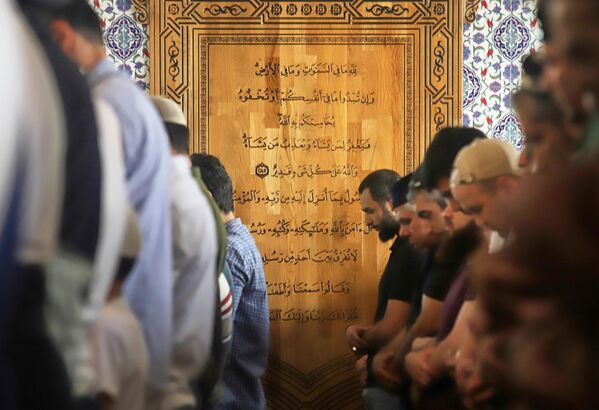 لِلّٰهِ مَا فِي السَّمٰوَاتِ وَمَا فِي الْاَرْضِ
وَاِنْ تُبْدُوا مَا فِي اَنْفُسِكُمْ اَوْ تُخْفُوهُ
يُحَاسِبْكُمْ بِهِ اللّٰهُ
فَيَغْفِرُ لِمَنْ يَشَاءُ وَيُعَذِّبُ مَنْ يَشَاءُ
وَاللّٰهُ عَلٰى كُلِّ شَيْءٍ قَدِيرٌ
سُولُ بِمَا اُنْزِلَ اِلَيْهِ مِنْ رَبِّهِ وَالْمُؤْمِنُ
كُلٌّ اٰمَنَ بِاللّٰهِ وَمَلٰئِكَتِهِ وَكُتُبِهِ وَرُسُلِهِ
لَا نُفَرِّقُ بَيْنَ اَحَدٍ مِنْ رُسُلِهِ
وَقَالُوا سَمِعْنَا وَاَطَعْنَا
غُفْرَانَكَ رَبَّنَا وَاِلَيْكَ